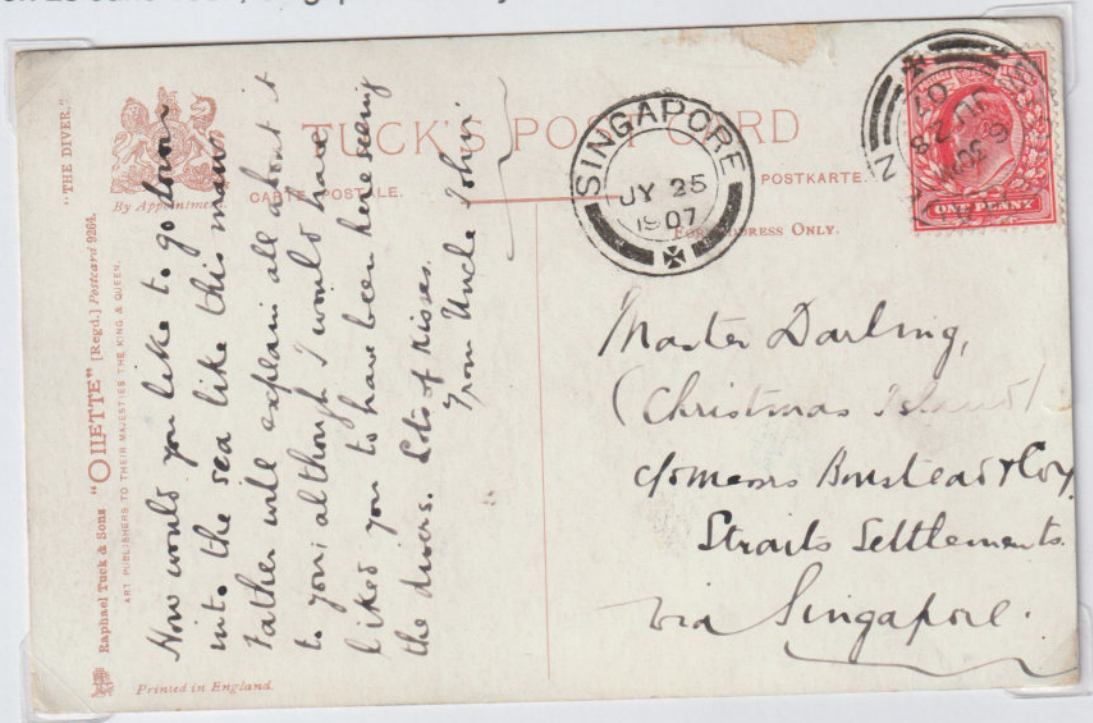 "THE DIVER."
Raphael Tuck & Sons "OILETTE" [Regd.] Postcard 9264.
ART PUBLISHERS TO THEIR MAJESTIES THE KING & QUEEN.
By Appointment.
TUCK'S POST CARD
CARTE POSTALE.
POSTKARTE.
FOR ADDRESS ONLY.
Printed in England.
How would you like to go down
into the sea like this man
Father will explain all about it
to you, although I would have
liked you to have been here seeing
the divers. Lots of kisses.
From Uncle John
SINGAPORE
JY 25
1907
JU 28
07
ONE PENNY
Master Darling,
(Christmas Island)
c/o Messrs Boustead & Coy.
Straits Settlements.
via Singapore.